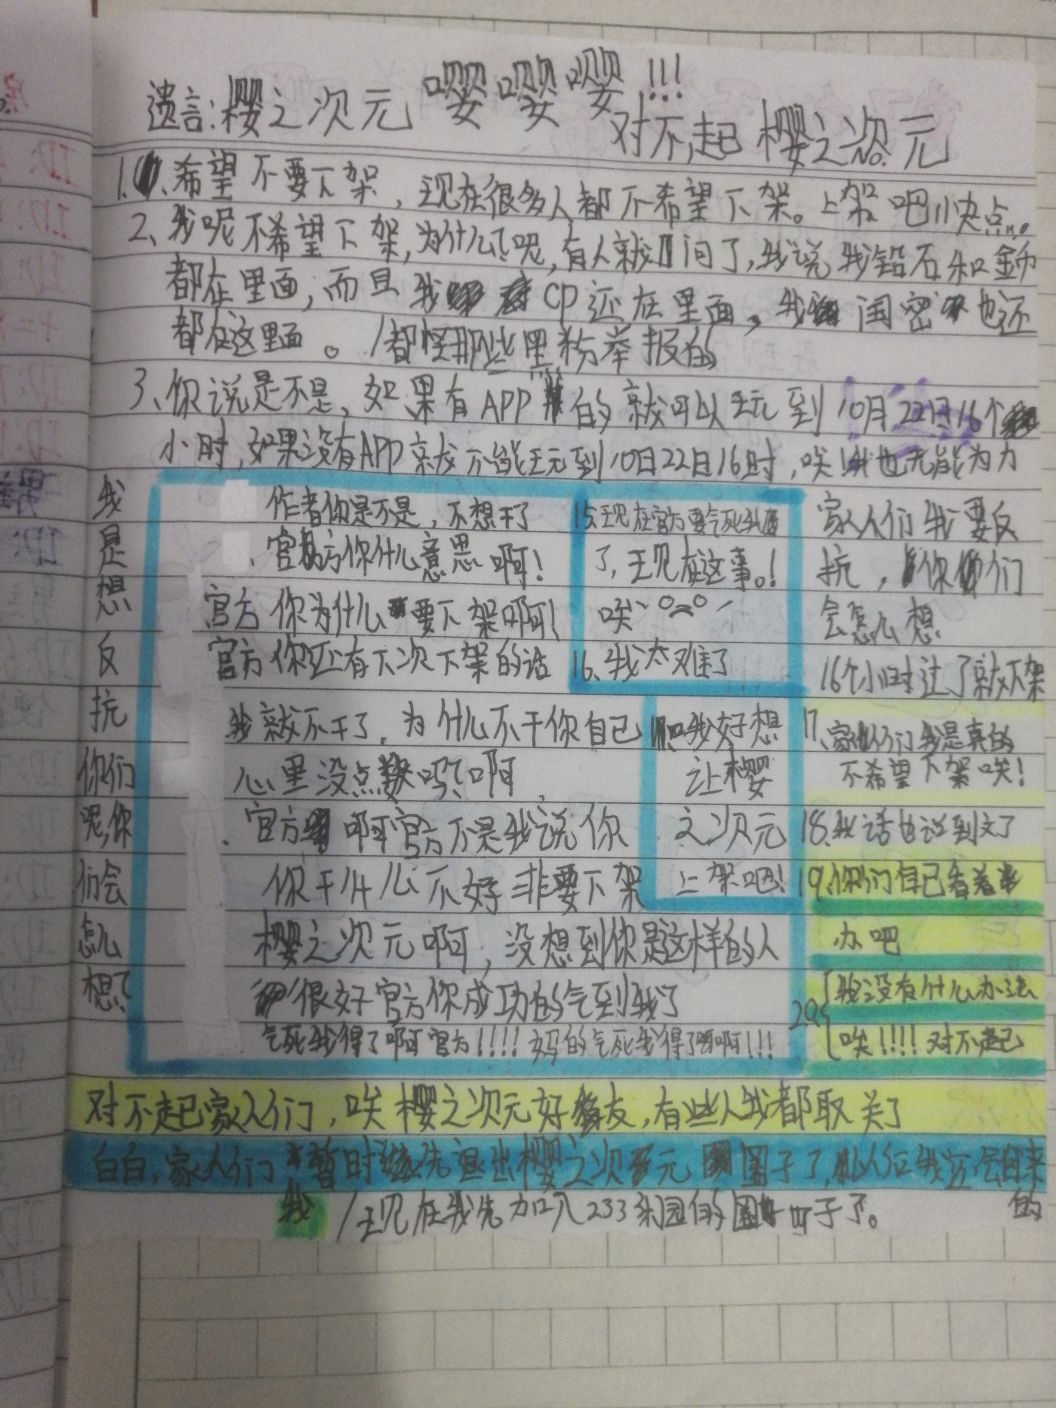 遗言:樱之次元 嘤嘤嘤!!!
对不起樱之次元
1.希望不要下架,现在很多人都不希望下架。上架吧小决点...
2、我呢不希望下架,为什么呢,有人就问了,我说我钻石和金币
都在里面,而且我CP还在里面,我闺密也还
都在这里面。/都怪那些黑粉举报的
3、你说是不是,如果有APP的就可以玩到10月22日16个
小时,如果没有APP就不能玩到10日22日16时,唉!我也无能为力
我是想反抗你们呢,你们会怎么想了
作者你是不是,不想干了
官方你什么意思啊!
官方你为什么要下架啊!
官方你还有下次下架的话
我就不干了,为什么不干你自己
心里没点数吗?啊
官方啊官方不是我说你
你干什么不好非要下架
樱之次元啊,没想到你是这样的人
很好官方你成功的气到我了
气死我得了啊官方!!!!妈的气死我得了啊!!!
15.现在官方要气死我
了,现在这事。!
唉
16、我太难了
我好想
让樱
之次元
上架吧!
家人们我要反
抗,你们
会怎么想
16个小时过了就下架
17、家人们我是真的
不希望下架唉!
18.我话也说到这了
19.你们自己看着
办吧
20、我没有什么办法
唉!!!!对不起
对不起家人们,唉樱之次元好友,有些人我都取关了
白白,家人们暂时先退出樱之次元圈子了,我还会回来的
我/现在我先加入233乐园的圈子了。